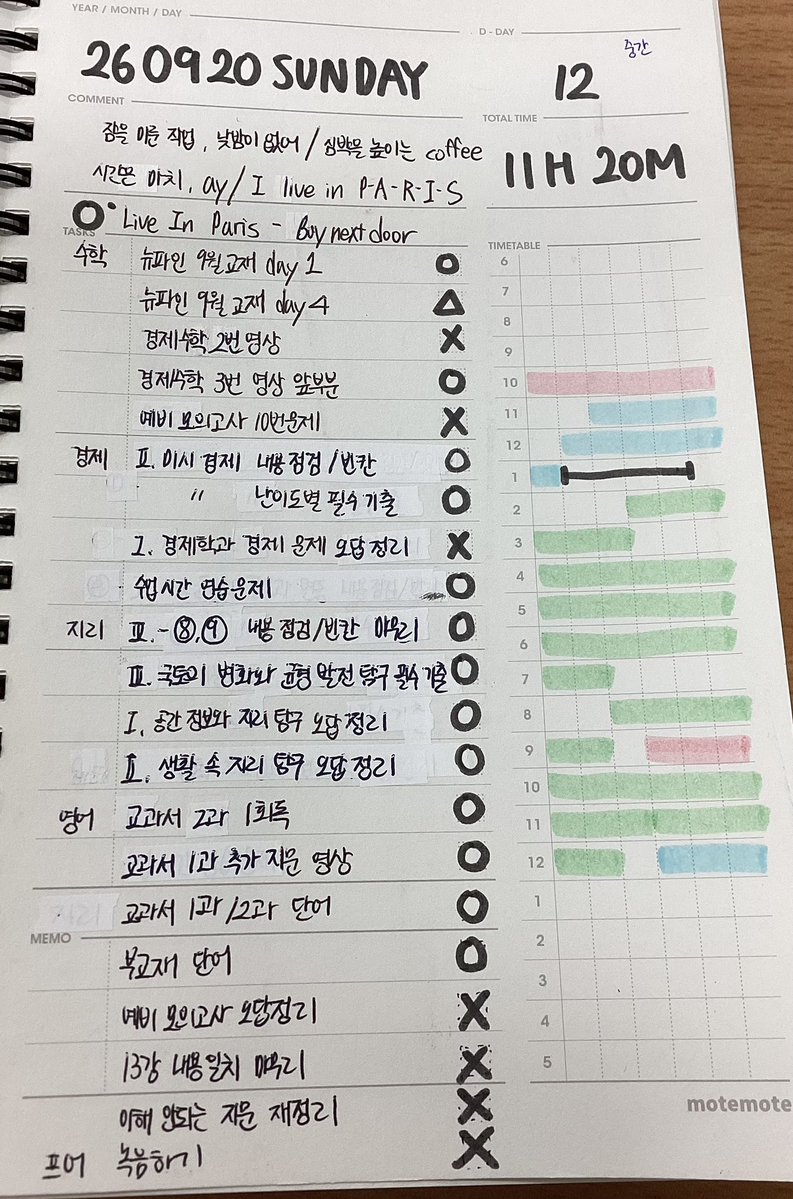 YEAR / MONTH / DAY
D - DAY
260920 SUNDAY
12
중간
COMMENT
TOTAL TIME
잠을 미룬 작업, 낮밤이 없어 / 심박을 높이는 coffee
11H 20M
시간은 마치, ay / I live in P-A-R-I-S
O Live In Paris - Boynextdoor
TASKS
TIMETABLE
수학 뉴파인 9월 교재 day 1 O
뉴파인 9월 교재 day 4 △
경제수학 2번 영상 X
경제수학 3번 영상 앞부분 O
예비 모의고사 10번 문제 X
경제 Ⅱ. 미시 경제 내용 점검/빈칸 O
〃 난이도별 필수 기출 O
Ⅰ. 경제학과 경제 문제 오답 정리 X
수업시간 연습문제 O
지리 Ⅲ. - ⑧, ⑨ 내용 점검/빈칸 마무리 O
Ⅲ. 국토의 변화와 균형 발전 탐구 필수 기출 O
Ⅰ. 공간 정보와 지리 탐구 오답 정리 O
Ⅱ. 생활 속 지리 탐구 오답 정리 O
영어 교과서 2과 1회독 O
교과서 1과 추가 지문 영상 O
교과서 1과/2과 단어 O
MEMO
부교재 단어 O
예비 모의고사 오답정리 X
13강 내용일치 마무리 X
이해 안되는 지문 재정리 X
프어 녹음하기 X
6
7
8
9
10
11
12
1
2
3
4
5
6
7
8
9
10
11
12
1
2
3
4
5
motemote